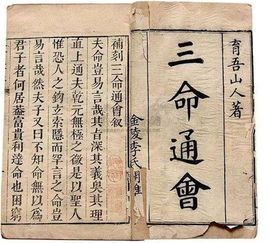 育吾山人著
三命通會
金陵李氏
補刻三命通會敘
夫命豈易言哉其旨深其義奧其理
直上通夫乾元無極之微是以聖人
惟恐人之鉤玄索隱而罕言之命豈
易言哉然夫子又曰不知命無以為
君子者何居葢富貴利達命也困窮